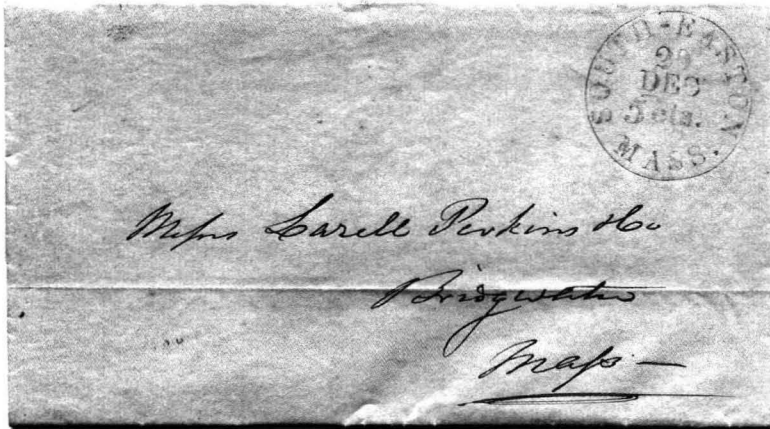 SOUTH-EASTON
29
DEC
5 cts.
MASS.
Messrs Lazell Perkins & Co
Bridgwater
Mass —